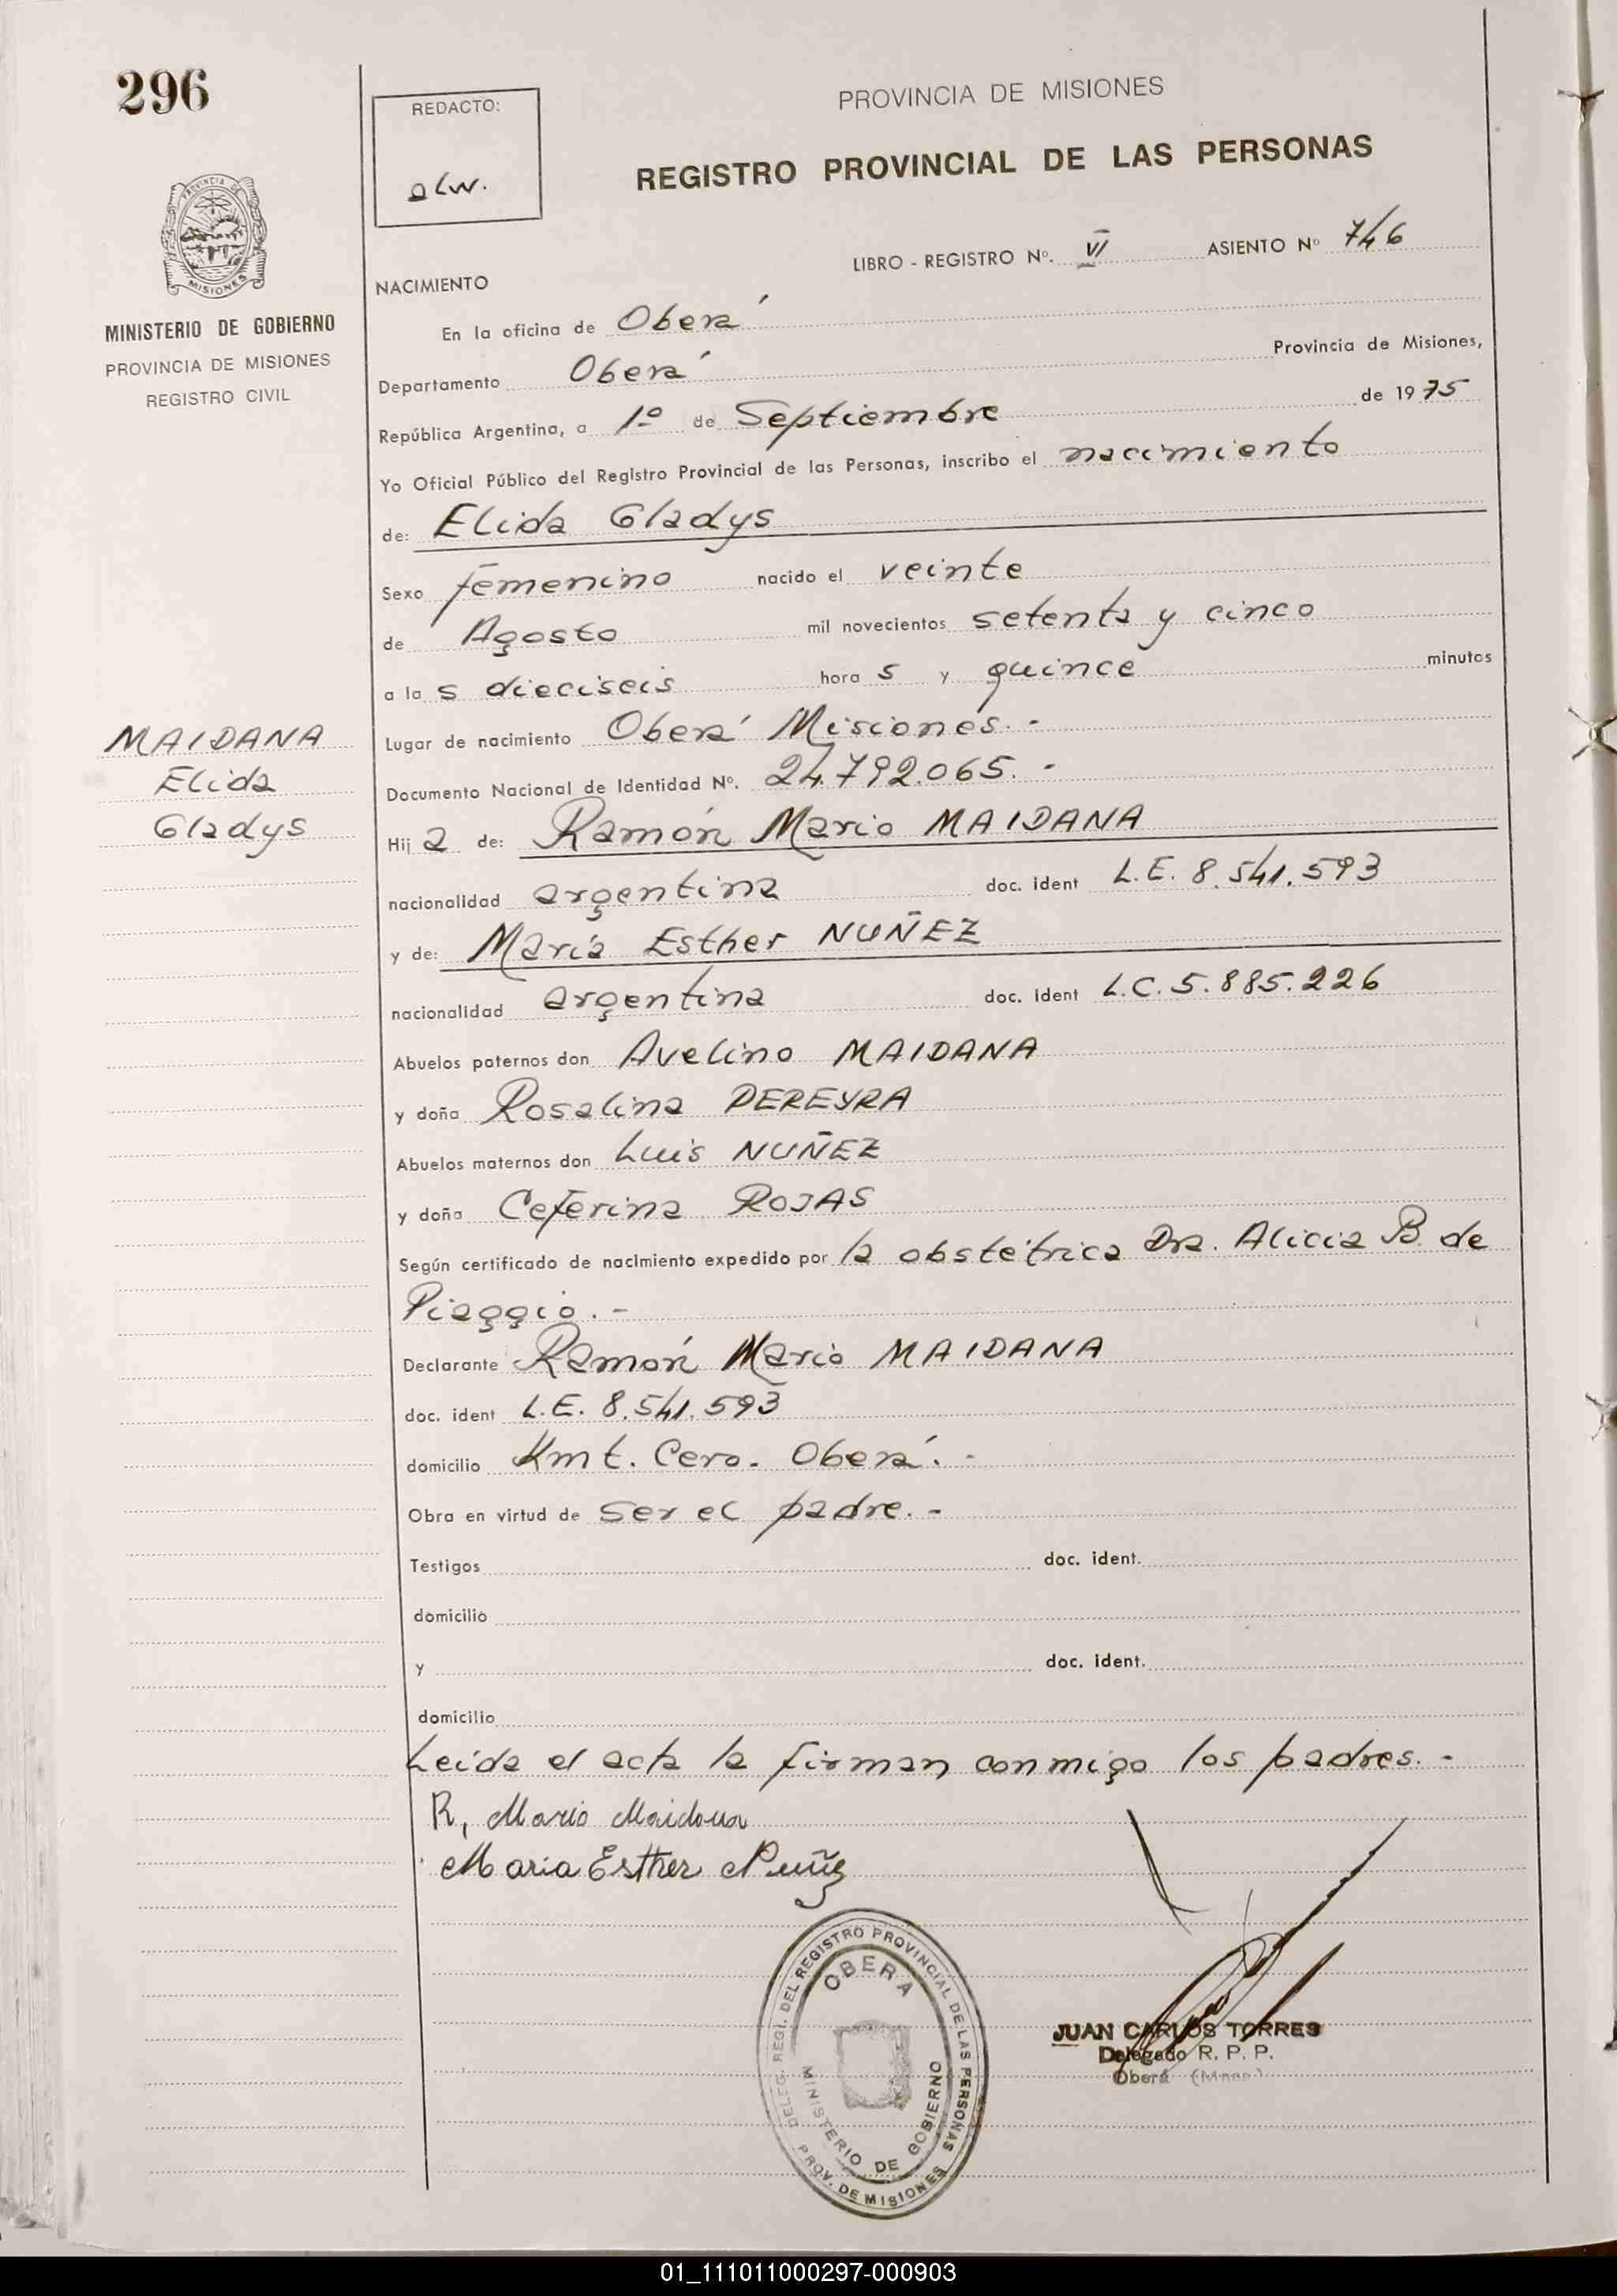 296
REDACTO:
alw.
PROVINCIA DE MISIONES
REGISTRO PROVINCIAL DE LAS PERSONAS
LIBRO - REGISTRO Nº. VI ASIENTO Nº 746
MINISTERIO DE GOBIERNO
PROVINCIA DE MISIONES
REGISTRO CIVIL
NACIMIENTO
En la oficina de Oberá
Departamento Oberá Provincia de Misiones,
República Argentina, a 1º de Septiembre de 1975
Yo Oficial Público del Registro Provincial de las Personas, inscribo el nacimiento
de: Elida Gladys
Sexo femenino nacido el veinte
de Agosto mil novecientos setenta y cinco
a la s dieciseis hora s y quince minutos
Lugar de nacimiento Oberá Misiones. -
Documento Nacional de Identidad Nº. 24.792.065. -
MAIDANA
Elida
Gladys
Hij a de: Ramón Mario MAIDANA
nacionalidad argentina doc. ident L.E. 8.541.593
y de: María Esther NUÑEZ
nacionalidad argentina doc. ident L.C. 5.885.226
Abuelos paternos don Avelino MAIDANA
y doña Rosalina PEREYRA
Abuelos maternos don Luis NUÑEZ
y doña Ceferina ROJAS
Según certificado de nacimiento expedido por la obstétrica Dra. Alicia B. de
Piaggio. -
Declarante Ramón Mario MAIDANA
doc. ident L.E. 8.541.593
domicilio Kmt. Cero. Oberá. -
Obra en virtud de ser el padre. -
Testigos doc. ident.
domicilio
y doc. ident.
domicilio
Leida el acta la firman conmigo los padres. -
R, Mario Maidana
Maria Esther Nuñez
DELEG. REGI. DEL REGISTRO PROVINCIAL DE LAS PERSONAS
OBERA
MINISTERIO DE GOBIERNO
PROV. DE MISIONES
JUAN CARLOS TORRES
Delegado R. P. P.
Oberá (Mnes)
01_111011000297-000903